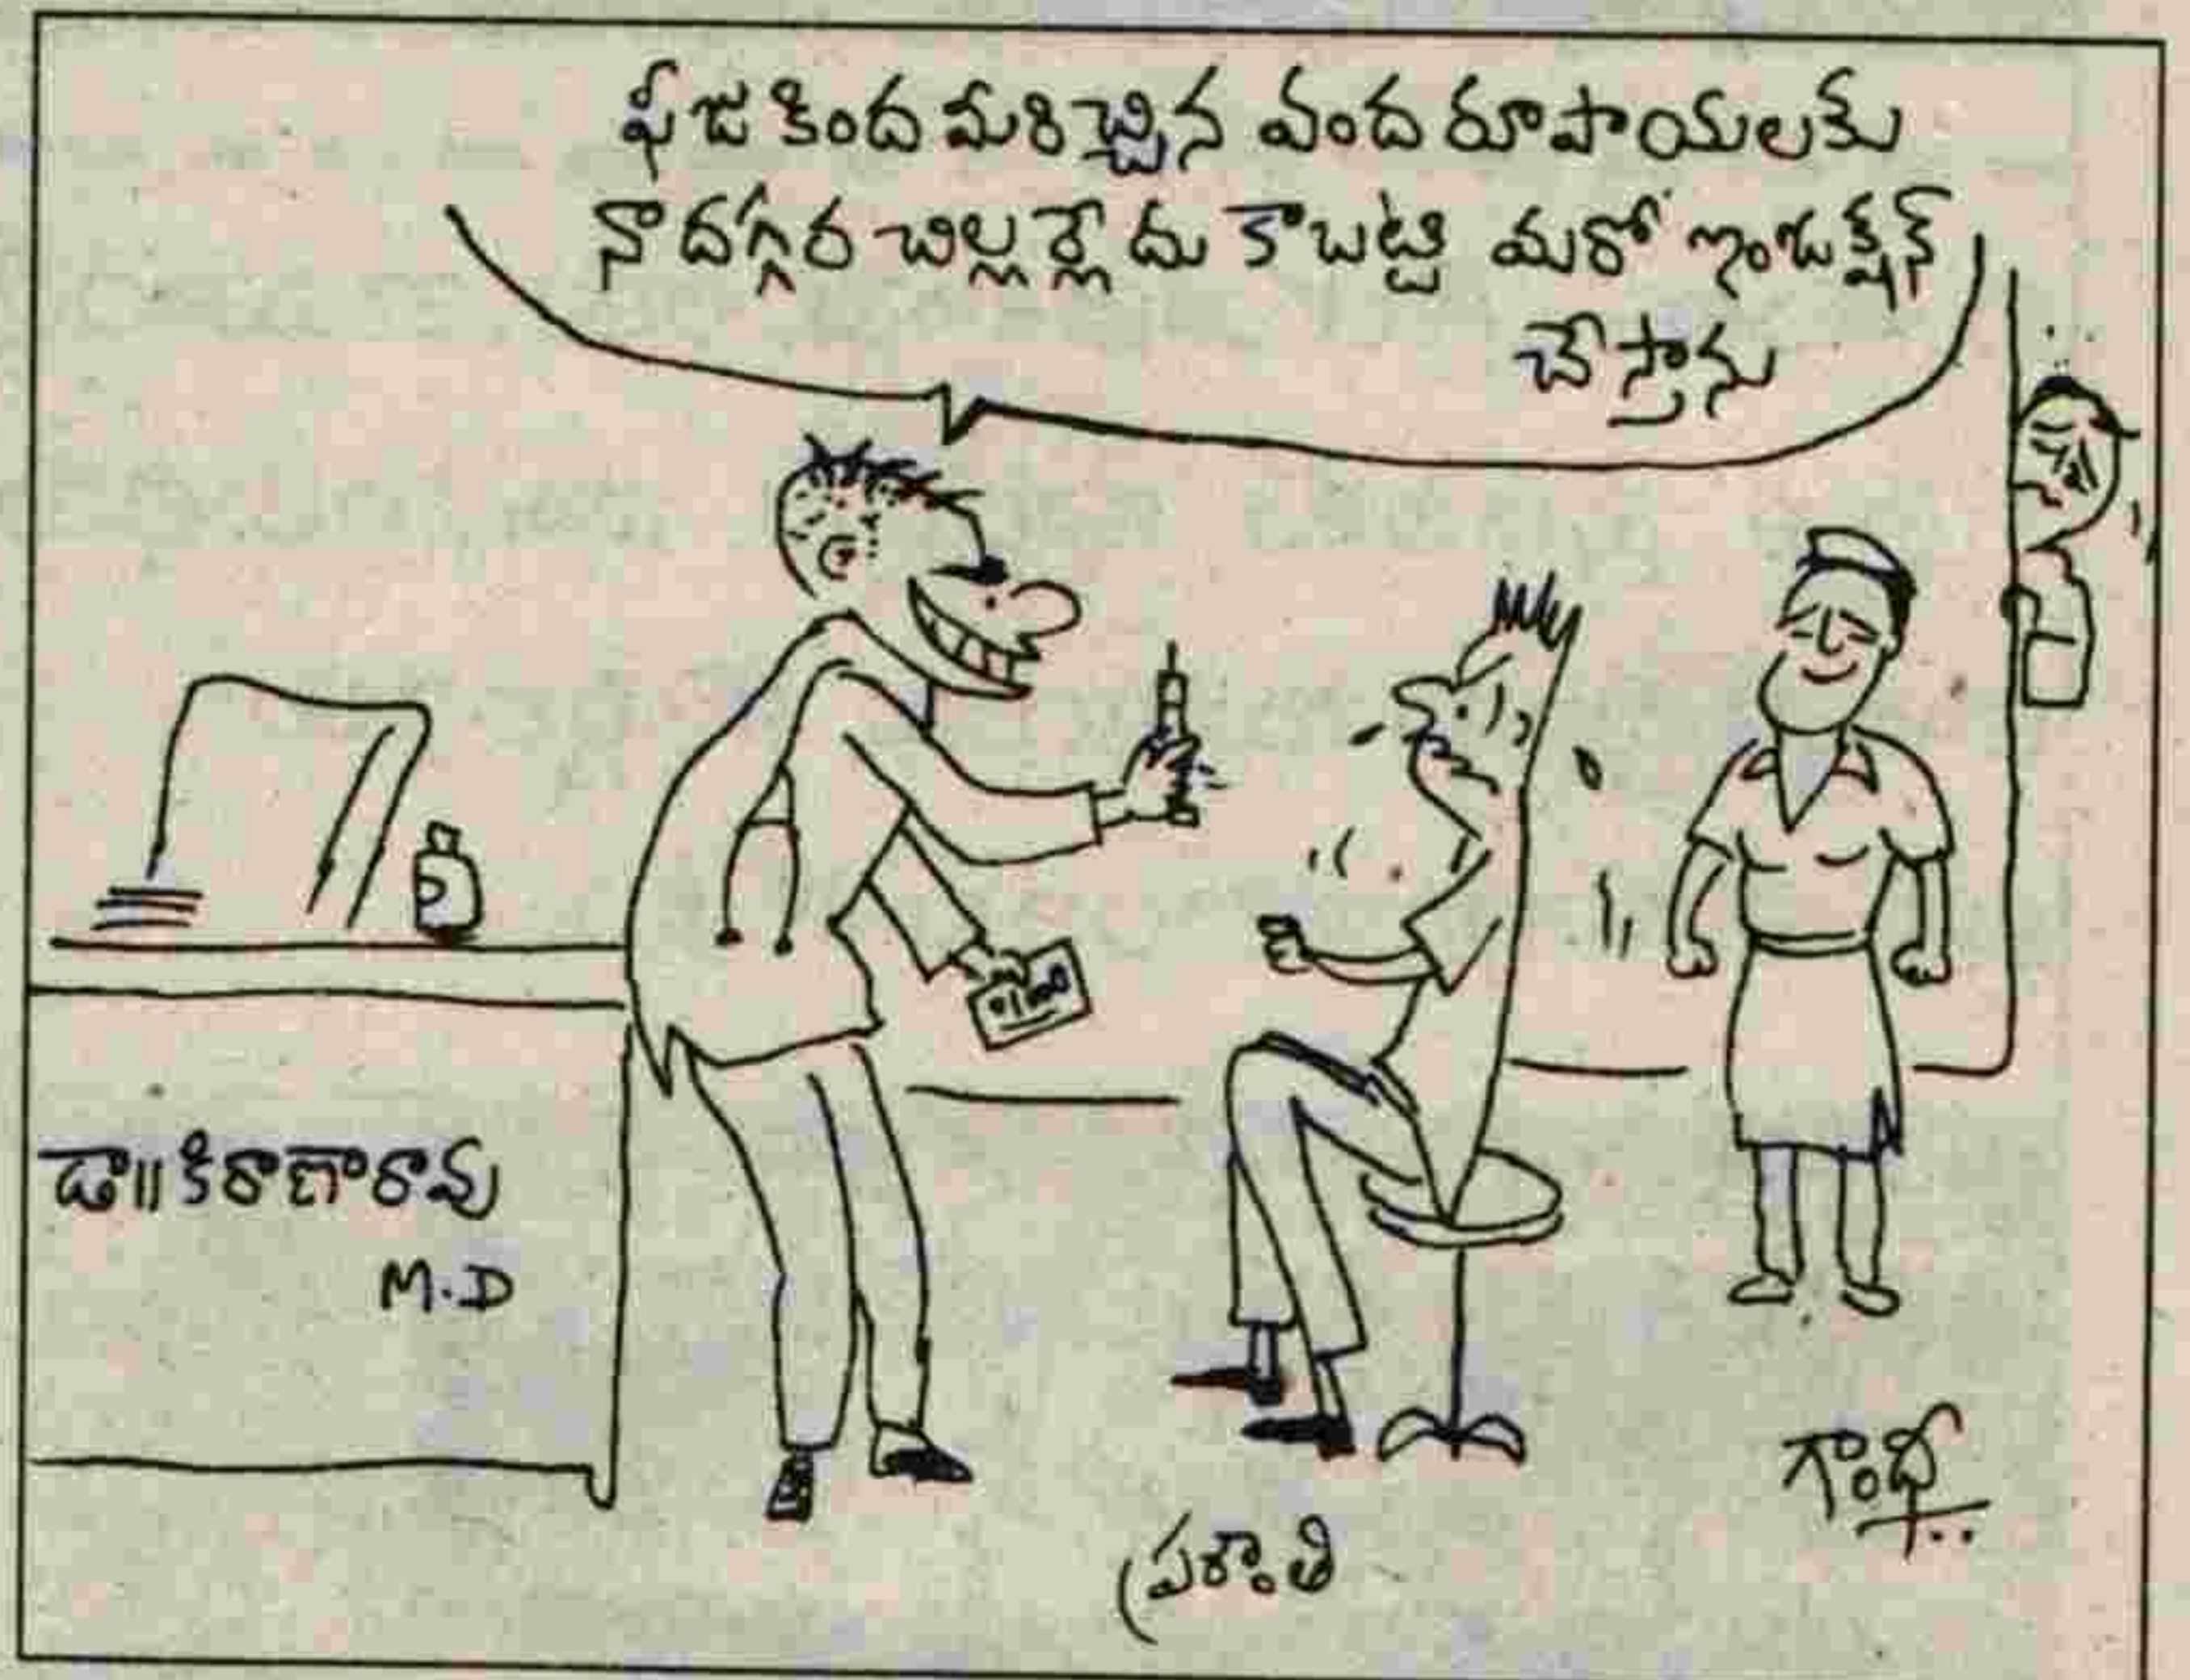 ఫీజు కింద మీరిచ్చిన వంద రూపాయలకు
నా దగ్గర చిల్లర్లేదు కాబట్టి మరో ఇంజక్షన్
చేస్తాను
100
డా॥ కిరాణారావు
M.D
గాంధీ